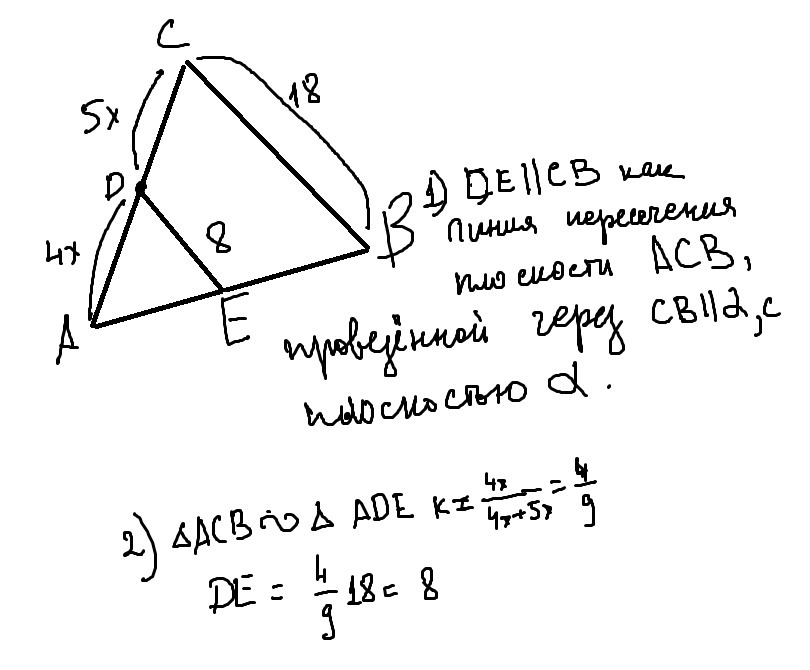 C
5x
18
D
4x
8
B
A
E
1) DE||CB как
линия пересечения
плоскости ACB,
проведённой через CB||α, с
плоскостью α.
2) △ACB ∾ △ ADE k = 4x/(4x+5x) = 4/9
DE = 4/9 18 = 8